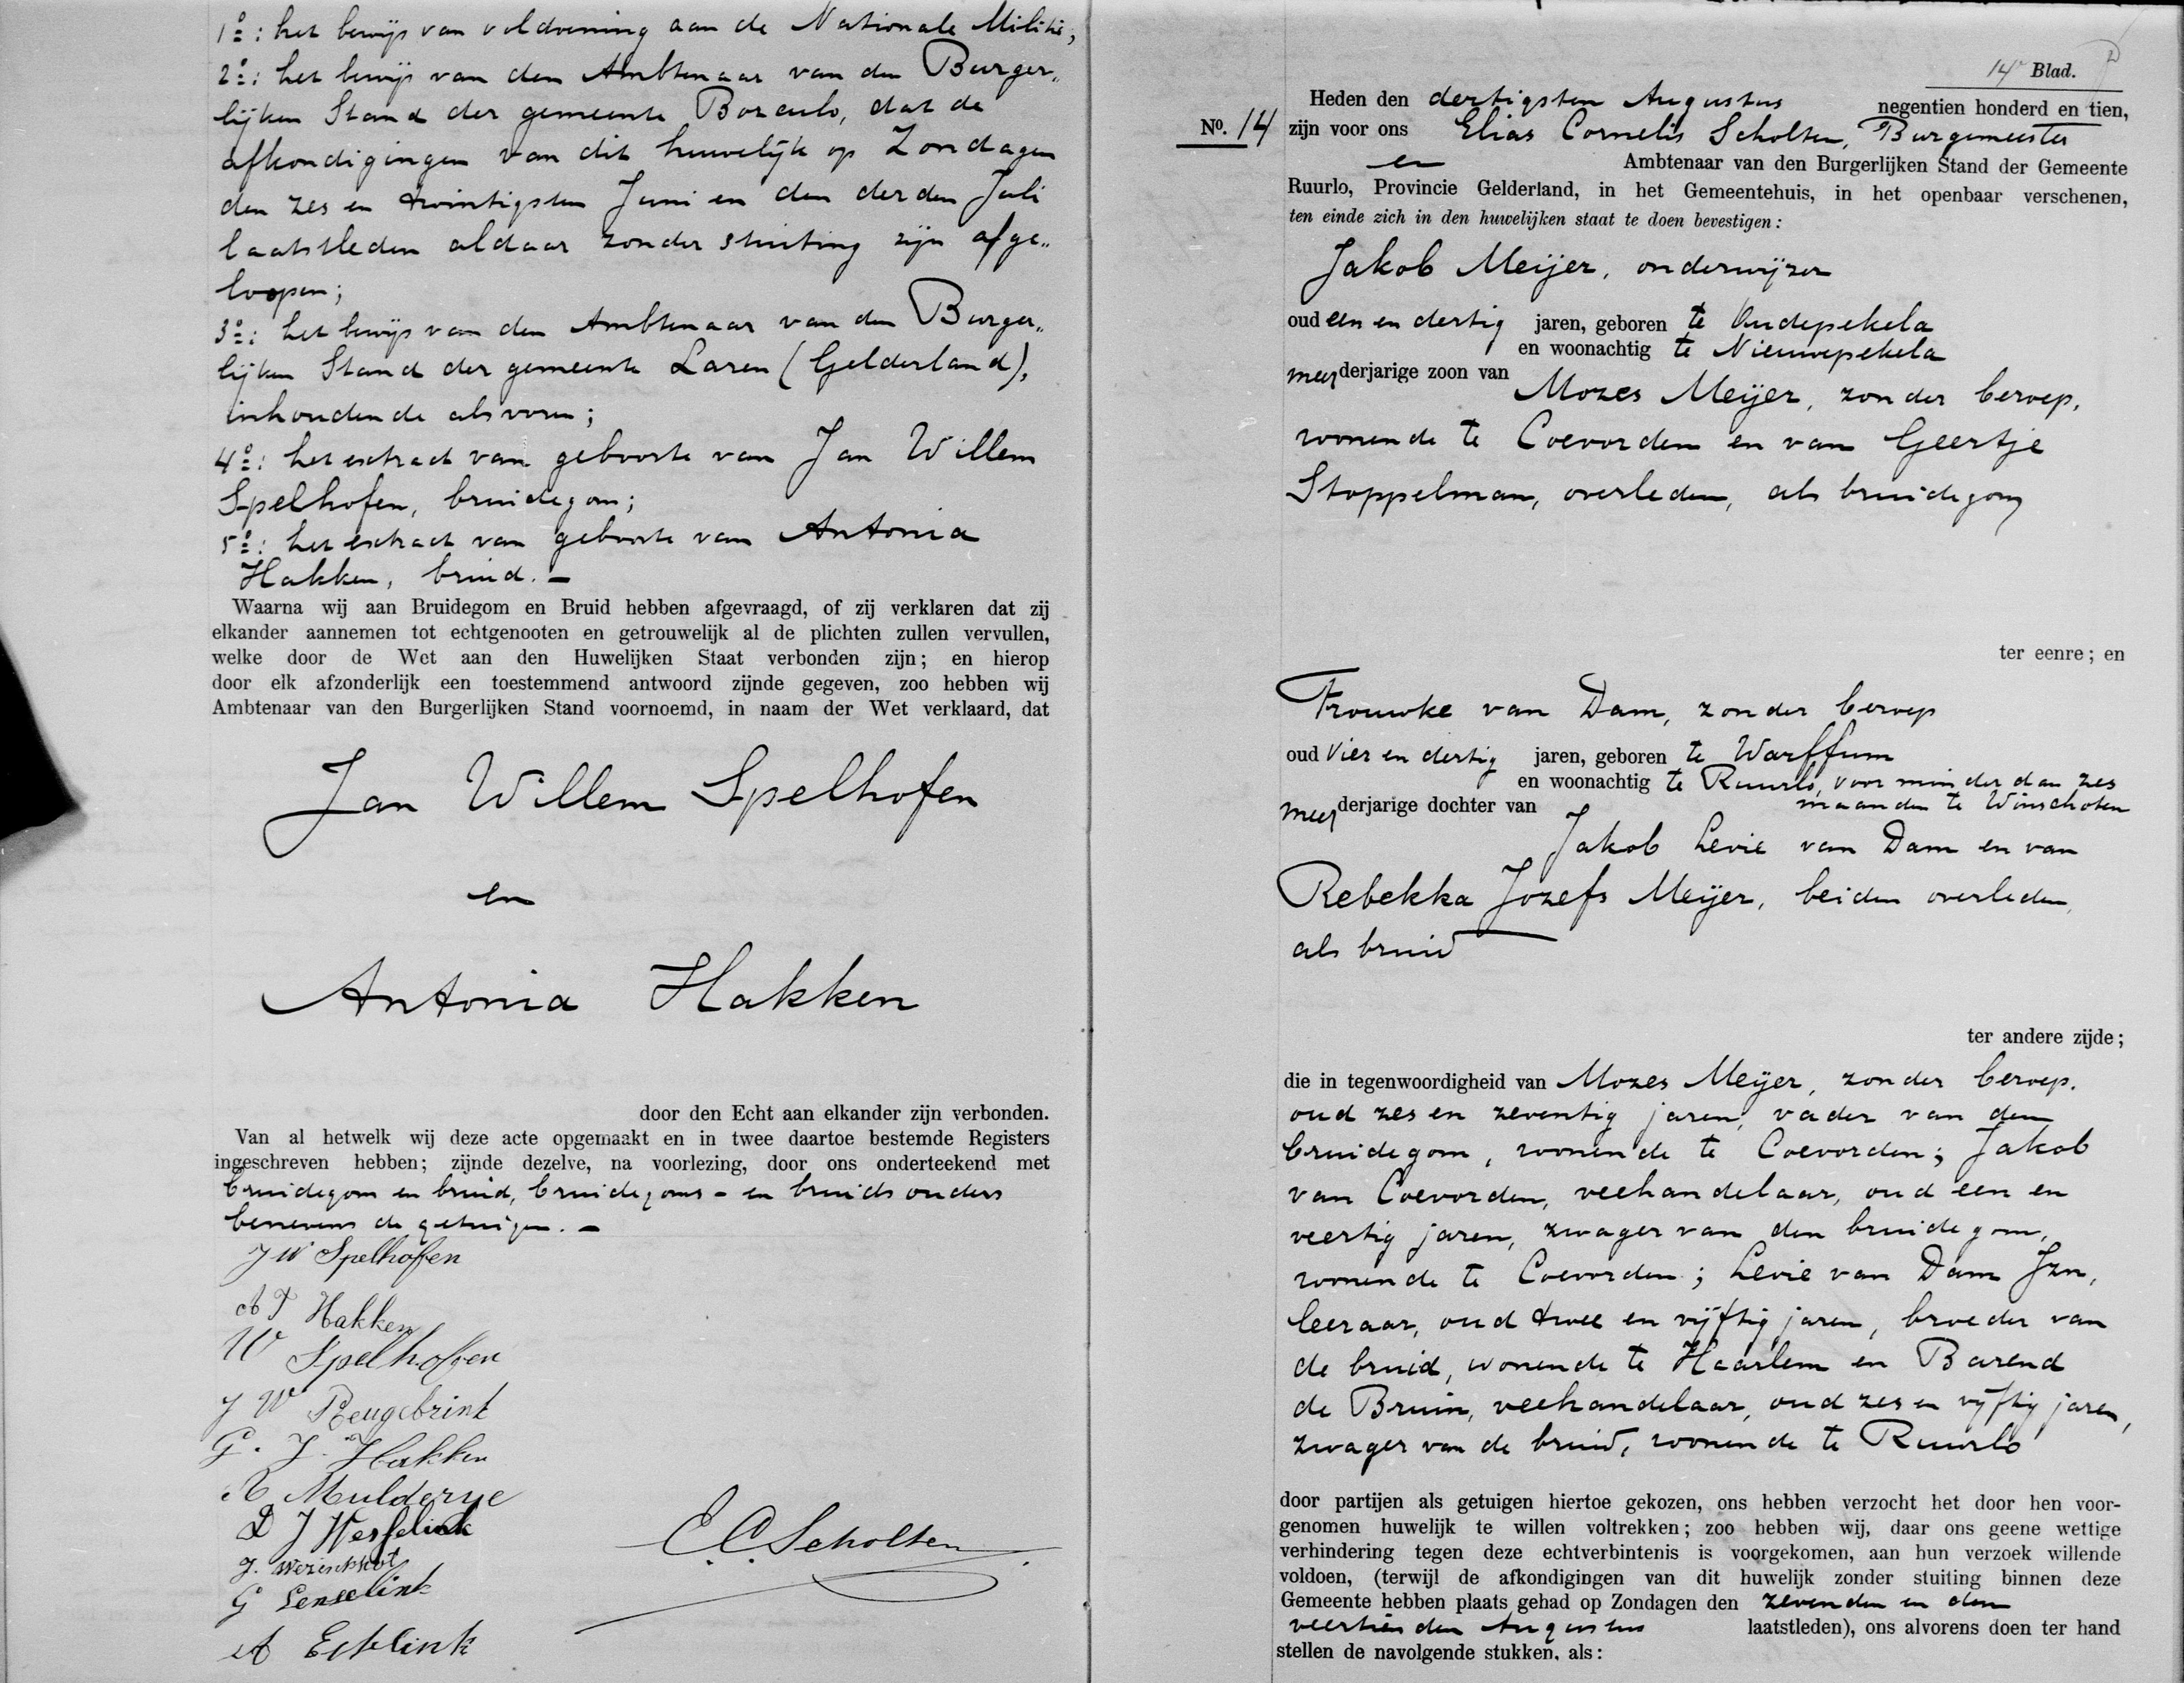 1º: het bewijs van voldoening aan de Nationale Militie,
2º: het bewijs van den Ambtenaar van den Burger„
lijken Stand der gemeente Borculo, dat de
afkondigingen van dit huwelijk op Zondagen
den zes en twintigsten Juni en den derden Juli
laatstleden aldaar zonder stuiting zijn afge„
loopen;
3º: het bewijs van den Ambtenaar van den Burger„
lijken Stand der gemeente Laren (Gelderland),
inhoudende alsvoren;
4º: het extract van geboorte van Jan Willem
Spelhofen, bruidegom;
5º: het extract van geboorte van Antonia
Hakken, bruid. –
Waarna wij aan Bruidegom en Bruid hebben afgevraagd, of zij verklaren dat zij
elkander aannemen tot echtgenooten en getrouwelijk al de plichten zullen vervullen,
welke door de Wet aan den Huwelijken Staat verbonden zijn; en hierop
door elk afzonderlijk een toestemmend antwoord zijnde gegeven, zoo hebben wij
Ambtenaar van den Burgerlijken Stand voornoemd, in naam der Wet verklaard, dat
Jan Willem Spelhofen
en
Antonia Hakken
door den Echt aan elkander zijn verbonden.
Van al hetwelk wij deze acte opgemaakt en in twee daartoe bestemde Registers
ingeschreven hebben; zijnde dezelve, na voorlezing, door ons onderteekend met
bruidegom en bruid, bruidegoms- en bruids ouders
benevens de getuigen. –
J W Spelhofen
A T Hakken
W Spelhofen
J W Reugebrink
G. J. Hakken
Mulderije
D J Wesselink
G Lenselink
A Eshlink
E. C. Scholten
14e Blad.
No. 14
Heden den dertigsten Augustus negentien honderd en tien,
zijn voor ons Elias Cornelis Scholten, Burgemeester
en Ambtenaar van den Burgerlijken Stand der Gemeente
Ruurlo, Provincie Gelderland, in het Gemeentehuis, in het openbaar verschenen,
ten einde zich in den huwelijken staat te doen bevestigen:
Jakob Meijer, onderwijzer
oud een en dertig jaren, geboren te Oudepekela
en woonachtig te Nieuwepekela
meerderjarige zoon van
Mozes Meijer, zonder beroep,
wonende te Coevorden en van Geertje
Stoppelman, overleden, als bruidegom
ter eenre; en
Frouwke van Dam, zonder beroep
oud vier en dertig jaren, geboren te Warffum
en woonachtig te Ruurlo, voor minder dan zes
maanden te Winschoten
meerderjarige dochter van
Jakob Levie van Dam en van
Rebekka Jozefs Meijer, beiden overleden,
als bruid
ter andere zijde;
die in tegenwoordigheid van Mozes Meijer, zonder beroep,
oud zes en zeventig jaren, vader van den
bruidegom, wonende te Coevorden; Jakob
van Coevorden, veehandelaar, oud een en
veertig jaren, zwager van den bruidegom,
wonende te Coevorden; Levie van Dam Jzn,
leeraar, oud twee en vijftig jaren, broeder van
de bruid, wonende te Haarlem en Barend
de Bruin, veehandelaar, oud zes en vijftig jaren,
zwager van de bruid, wonende te Ruurlo
door partijen als getuigen hiertoe gekozen, ons hebben verzocht het door hen voor-
genomen huwelijk te willen voltrekken; zoo hebben wij, daar ons geene wettige
verhindering tegen deze echtverbintenis is voorgekomen, aan hun verzoek willende
voldoen, (terwijl de afkondigingen van dit huwelijk zonder stuiting binnen deze
Gemeente hebben plaats gehad op Zondagen den zevenden en den
veertienden Augustus laatstleden), ons alvorens doen ter hand
stellen de navolgende stukken, als: